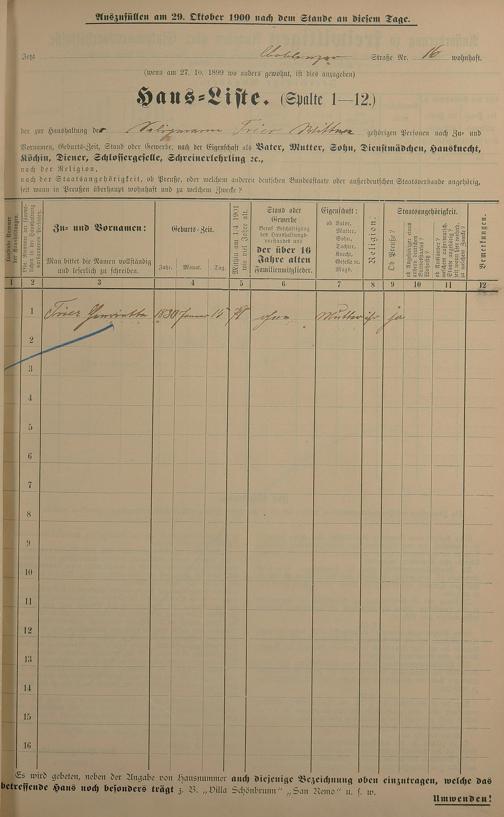 Auszufüllen am 29. Oktober 1900 nach dem Stande an diesem Tage.
Jetzt Coblenzer Straße Nr. 16 wohnhaft.
(wenn am 27. 10. 1899 wo anders gewohnt, ist dies anzugeben)
Haus-Liste. (Spalte 1—12.)
der zur Haushaltung der Trier Wittwe gehörigen Personen nach Zu- und
Vornamen, Geburts-Zeit, Stand oder Gewerbe, nach der Eigenschaft als Vater, Mutter, Sohn, Dienstmädchen, Hausknecht,
Köchin, Diener, Schlossergeselle, Schreinerlehrling ec.,
nach der Religion,
nach der Staatsangehörigkeit, ob Preuße, oder welchem anderen deutschen Bundesstaate oder außerdeutschen Staatsverbande angehörig,
seit wann in Preußen überhaupt wohnhaft und zu welchem Zwecke?
Zu- und Vornamen:
Man bittet die Namen vollständig
und leserlich zu schreiben.
Geburts-Zeit.
Jahr. Monat. Tag.
Mithin am 1/4 1901
wie viel Jahre alt.
Stand oder
Gewerbe
der über 16
Jahre alten
Familienmitglieder.
Eigenschaft:
ob Vater,
Mutter,
Sohn,
Tochter,
Knecht,
Geselle ec.
Magd.
Religion.
Staatsangehörigkeit.
Ob Preuße?
Bemerkungen.
1 2 3 4 5 6 7 8 9 10 11 12
1 Trier Henriette 1830 Januar 15 ohne Mutter isr ja
2
3
4
5
6
7
8
9
10
11
12
13
14
15
16
Es wird gebeten, neben der Angabe von Hausnummer auch diejenige Bezeichnung oben einzutragen, welche das
betreffende Haus noch besonders trägt z. B. „Villa Schönbrunn“ „San Remo“ u. s. w.
Umwenden!